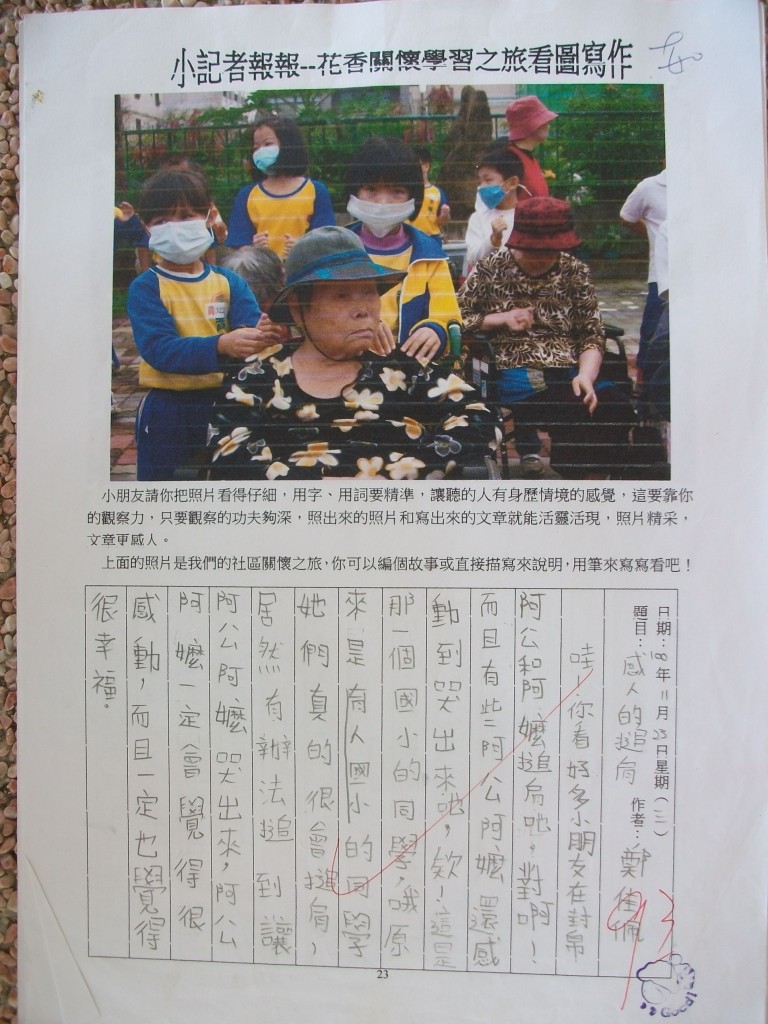 小記者報報--花香關懷學習之旅看圖寫作
小朋友請你把照片看得仔細，用字、用詞要精準，讓聽的人有身歷情境的感覺，這要靠你
的觀察力，只要觀察的功夫夠深，照出來的照片和寫出來的文章就能活靈活現，照片精采，
文章更感人。
上面的照片是我們的社區關懷之旅，你可以編個故事或直接描寫來說明，用筆來寫寫看吧！
日期：100年11月23日星期（三）
題目：感人的搥肩 作者：鄭佳佩
哇！你看好多小朋友在封帛
阿公和阿嬤搥肩吔，對啊！
而且有些阿公阿嬤還感
動到哭出來吔，欸！這是
那一個國小的同學，哦原
來是育人國小的同學
她們真的很會搥肩，
居然有辦法搥到讓
阿公阿嬤哭出來，阿公
阿嬤一定會覺得很
感動，而且一定也覺得
很幸福！
93
23